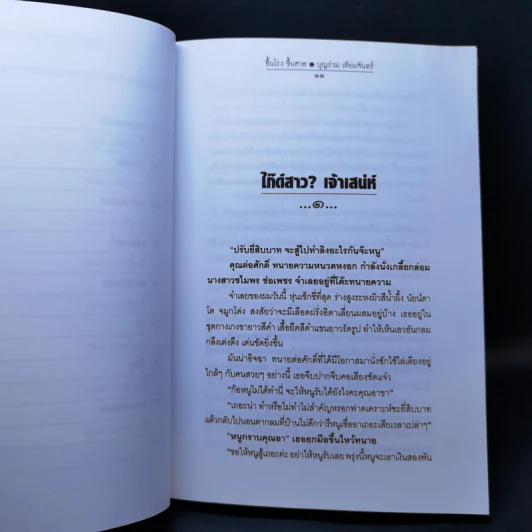 ขึ้นโรง ขึ้นศาล ● บุญร่วม เทียมจันทร์
๑๑
ไก๊ด์สาว? เจ้าเสน่ห์
...๑...
"ปรับยี่สิบบาท จะสู้ไปทำลิงอะไรกันจ๊ะหนู"
คุณต่อศักดิ์ ทนายความหนวดหงอก กำลังนั่งเกลี้ยกล่อม
นางสาวชไมพร ช่อเพชร จำเลยอยู่ที่โต๊ะทนายความ
จำเลยของผมวันนี้ หุ่นเซ็กซี่ที่สุด ร่างสูงระหงผิวสีน้ำผึ้ง นัยน์ตา
โต จมูกโด่ง สงสัยว่าจะมีเลือดฝรั่งอิตาเลี่ยนผสมอยู่บ้าง เธออยู่ใน
ชุดกางเกงขายาวสีดำ เสื้อยืดสีดำแขนยาวรัดรูป ทำให้เห็นเอวอันกลม
กลึงเต่งตึง เด่นชัดยิ่งขึ้น
มันน่าอิจฉา ทนายต่อศักดิ์ที่ได้มีโอกาสมานั่งซักไซ้ไล่เลียงอยู่
ใกล้ๆ กับคนสวยๆ อย่างนี้ เธอจีบปากจีบคอเสียงชัดแจ๋ว
"ก้อหนูไม่ได้ทำนี่ จะให้หนูรับได้ยังไงคะคุณอาขา"
"เถอะน่า ทำหรือไม่ทำไม่สำคัญหรอกฟาดเคราะห์ซะยี่สิบบาท
แล้วกลับไปนอนตากลมที่บ้านไม่ดีกว่ารึหนูเชื่ออาเถอะเสียเวลาเปล่าๆ"
"หนูกราบคุณอา" เธอยกมือขึ้นไหว้ทนาย
"ขอให้หนูสู้เถอะค่ะ อย่าให้หนูรับเลย พรุ่งนี้หนูจะเอาเงินสองพัน